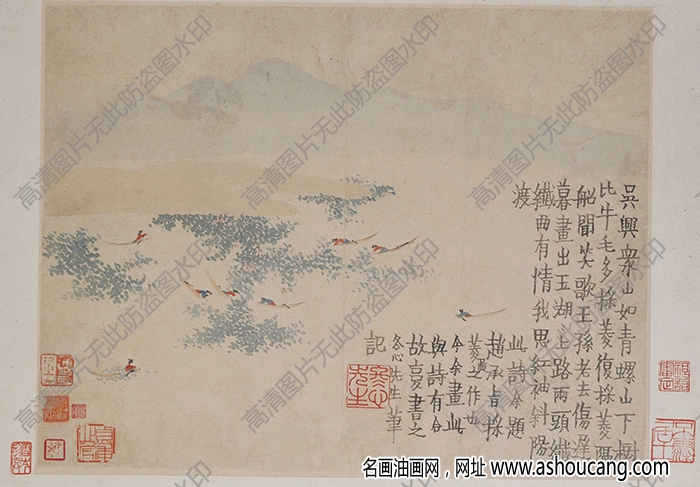 吳興眾山如青螺山下樹
比牛毛多採菱復採菱隔
船聞笑歌王孫老去傷遲
暮畫出玉湖上路兩頭纖
纖曲有情我思紅袖斜陽
渡
此詩余題
趙承旨採
菱圖之作也
今余畫此
與詩有合
故更書之
冬心先生筆
記
冬心先生
高清图片无此防盗图水印
名画油画网，网址 www.ashoucang.com